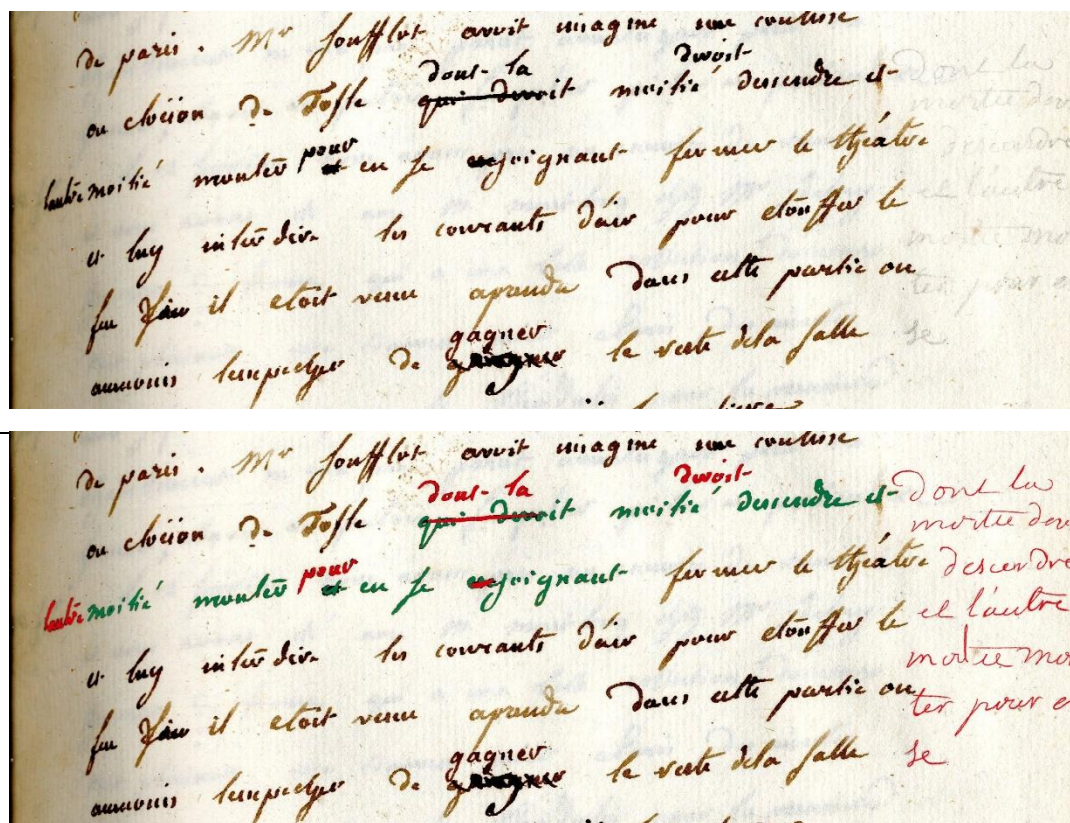 de paris. Mr soufflot avoit imagine une coulisse
dont la devoit
ou cloison de Tosle qui devoit moitié descendre et
lautre moitié monter pour et en se rejoignant fermer le théatre
et luy interdire les courants dair pour etouffer le
feu il etoit venu aprendre dans cette partie ou
gagner
aumoins lempecher de le reste dela salle
dont la
moitie dev
descendre
et l'autre
moitie mon
ter pour e
se
de paris. Mr soufflot avoit imagine une coulisse
dont la devoit
ou cloison de Tosle qui devoit moitié descendre et
lautre moitié monter pour et en se rejoignant fermer le théatre
et luy interdire les courants dair pour etouffer le
feu il etoit venu aprendre dans cette partie ou
gagner
aumoins lempecher de le reste dela salle
dont la
moitie dev
descendre
et l'autre
moitie mon
ter pour e
se